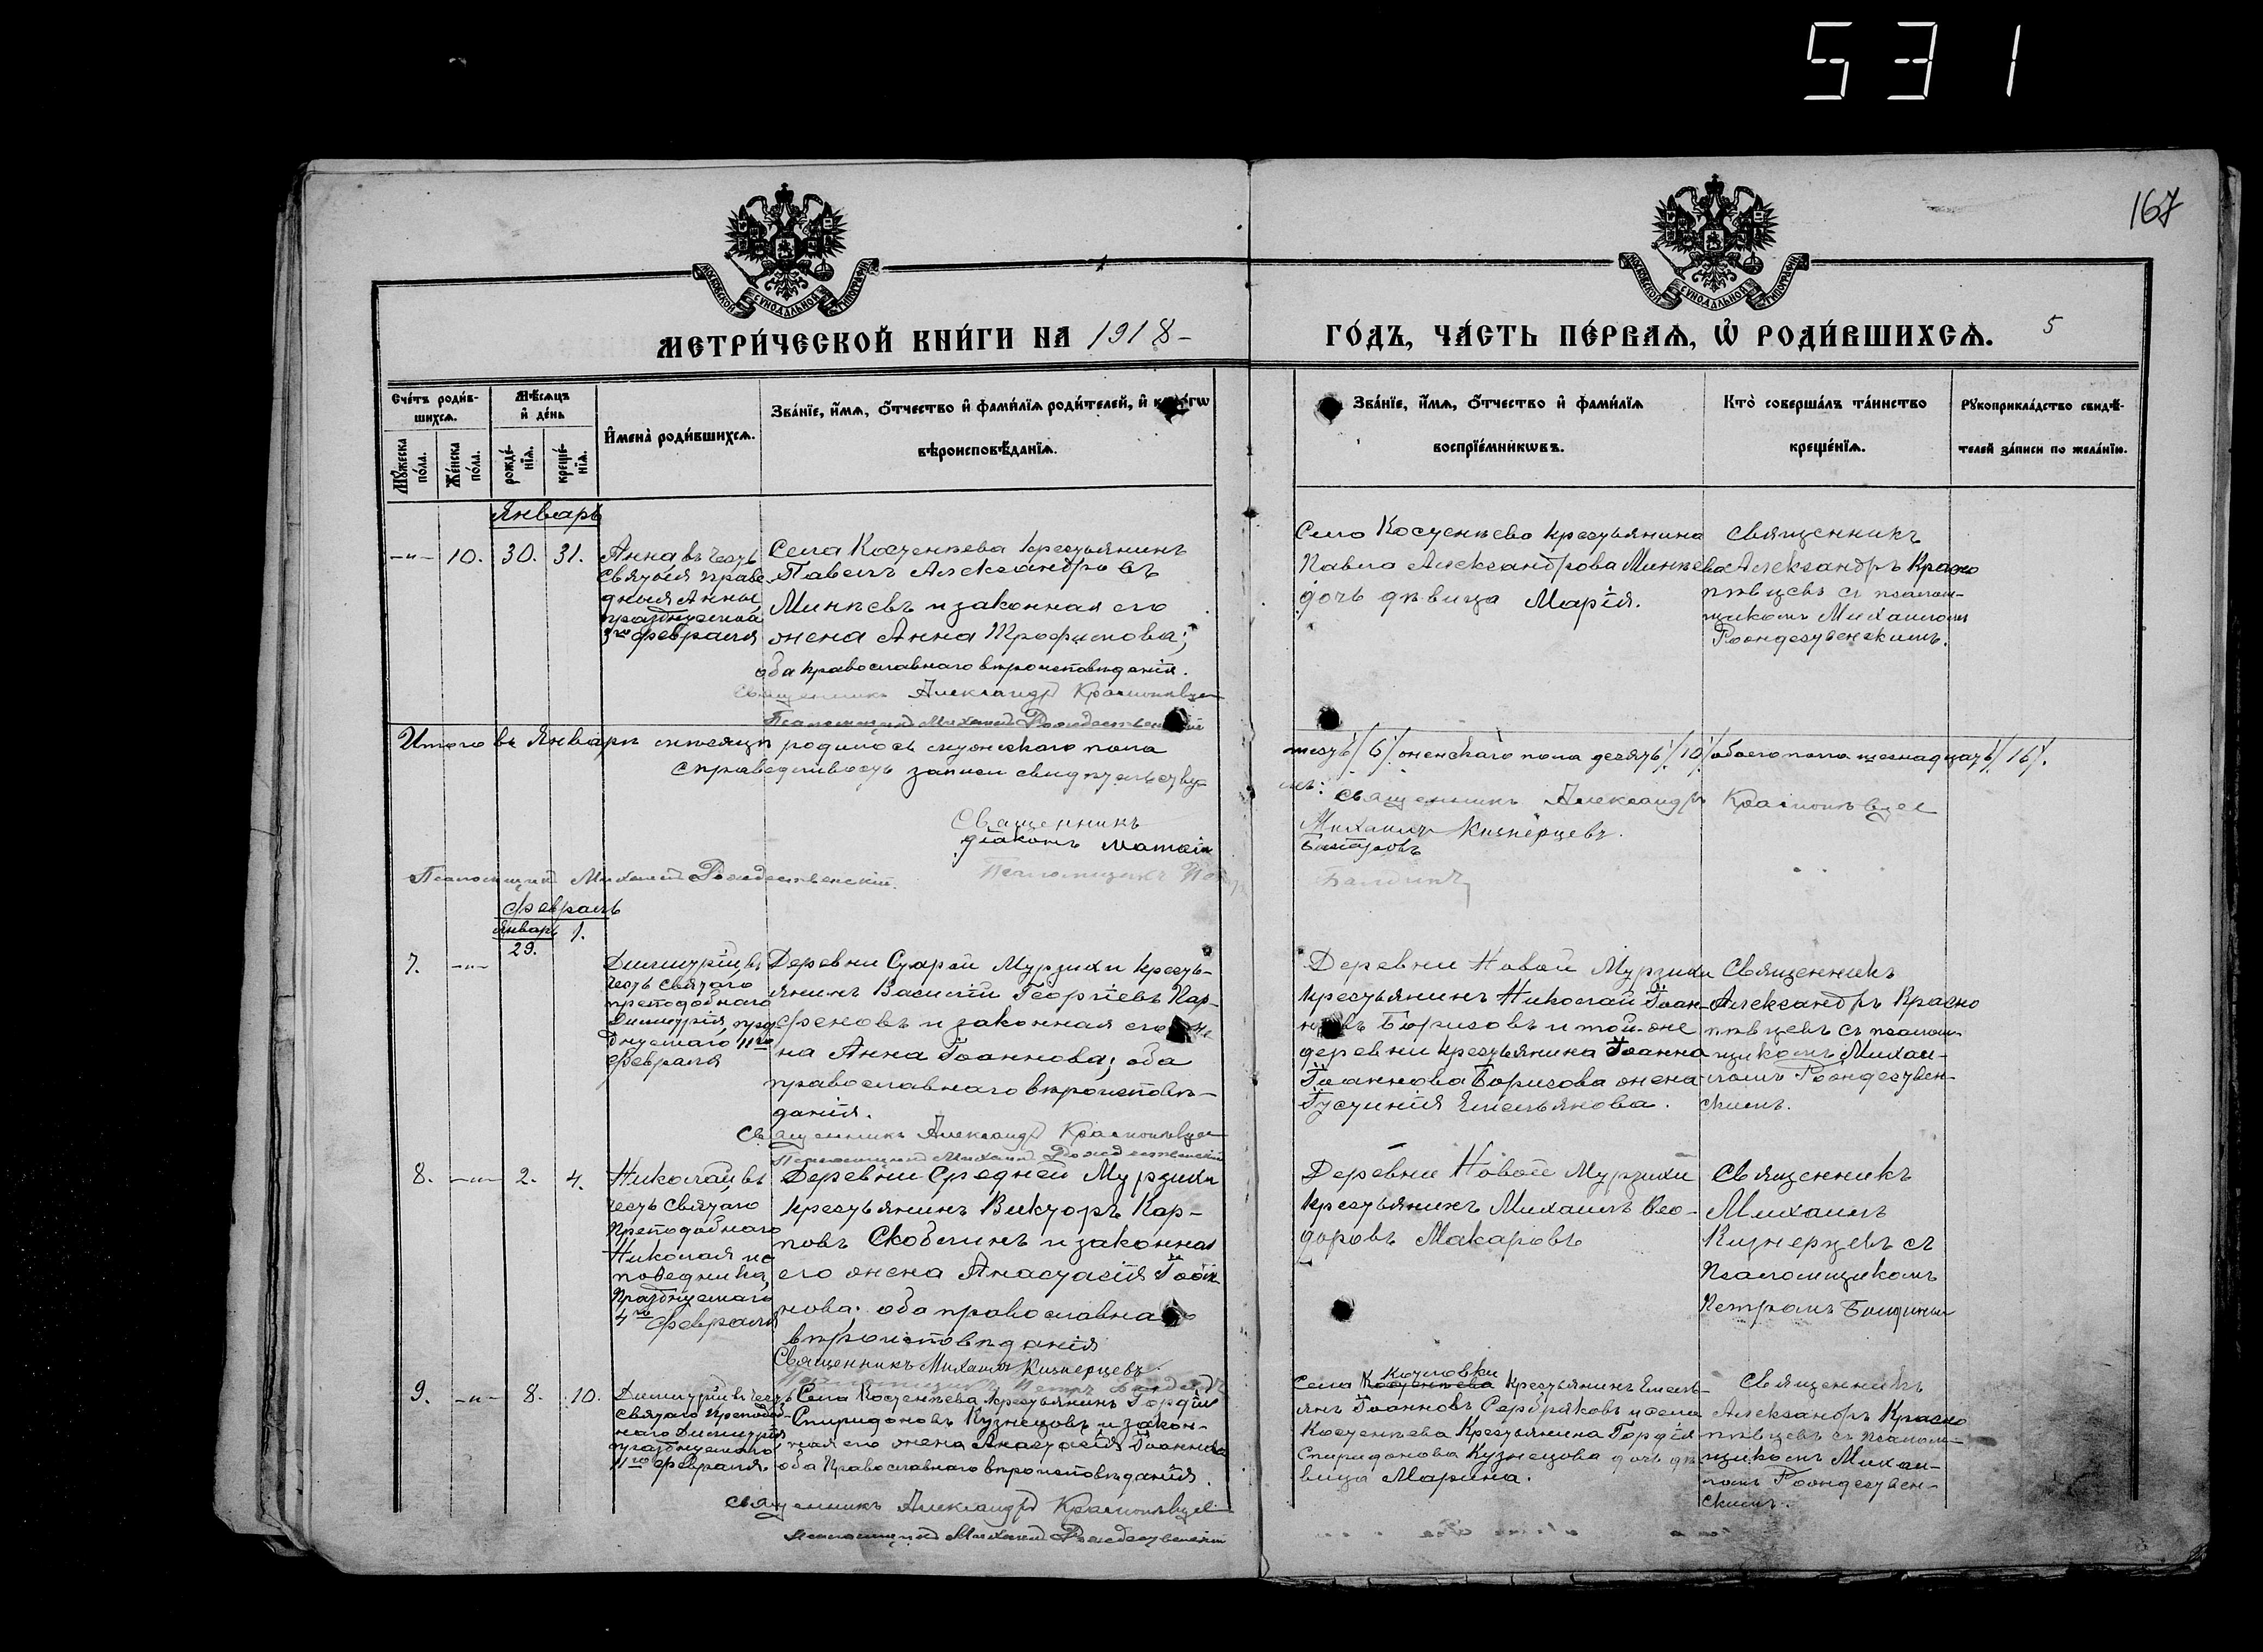 531
167
МОСКОВСКОЙ СѴНОДАЛЬНОЙ ТИПОГРАФІИ
МОСКОВСКОЙ СѴНОДАЛЬНОЙ ТИПОГРАФІИ
МЕТРИ́ЧЕСКОЙ КНИ́ГИ НА 1918
ГО́ДЪ, ЧА́СТЬ ПЕ́РВАѦ, Ѡ҆ РОДИ́ВШИХСѦ. 5
Сче́тъ роди́в-
шихсѧ.
Мꙋ́жеска по́ла.
Же́нска по́ла.
Мѣ́сѧцъ и҆ де́нь
рожде́-нїѧ.
креще́-нїѧ.
И҆мена̀ роди́вшихсѧ.
Зва́нїе, и҆́мѧ, ѻ҆́тчество и҆ фами́лїѧ роди́телей, и҆
вѣроисповѣ́данїѧ.
Зва́нїе, и҆́мѧ, ѻ҆́тчество и҆ фами́лїѧ
воспрїе́мникѡвъ.
Кто̀ соверша́лъ та́инство
креще́нїѧ.
Рꙋкоприкла́дство свидѣ́-
телей за́писи по жела́нїю.
Январь
-"- 10. 30. 31.
Анна въ честь
святыя праве
дныя Анны,
празднуемой
3го февраля
Села Костенѣева крестьянинъ
Павелъ Александровъ
Минѣевъ и законная его
жена Анна Трофимова;
оба православнаго вѣроисповѣданія.
Священникъ Александръ Краснопѣвцев
Псаломщикъ Михаилъ Рождественскій
Село Костенѣево крестьянина
Павла Александрова Минѣева
дочь дѣвица Марія.
Священникъ
Александръ Красно
пѣвцевъ съ псалом-
щикомъ Михаиломъ
Рождественскимъ.
Итого въ Январѣ мѣсяцѣ родилось мужескаго пола
шесть /6/. женскаго пола десять /10/ обоего пола шестнадцать /16/.
Справедливость записи свидѣтельству-
емъ: Священникъ Александръ Краснопѣвцев
Священникъ Михаилъ Кизнерцевъ.
діаконъ
Псаломщикъ Михаилъ Рождественскій.
Псаломщикъ
Февраль
Январь 1.
29.
7. -"-
Димитрій, въ
честь святаго
преподобнаго
Димитрія, праз
днуемаго 11го
февраля
Деревни Старой Мурзихи кресть-
янинъ Василій Георгіевъ Пар-
феновъ и законная его же
на Анна Іоаннова; оба
православнаго вѣроисповѣ-
данія.
Священникъ Александръ Краснопѣвцев
Псаломщикъ Михаилъ Рождественскій
Деревни Новой Мурзихи
крестьянинъ Николай Іоан-
новъ Борисовъ и той-же
деревни крестьянина Іоанна
Іоаннова Борисова жена
Іустинія Емельянова.
Священникъ
Александръ Красно
пѣвцевъ съ псалом
щикомъ Михаи-
ломъ Рождествен-
скимъ.
8. -"- 2. 4.
Николай, въ
честь святаго
Преподобнаго
Николая ис
поведника,
Празднуемаго
4го Февраля
Деревни Средней Мурзихи
крестьянинъ Викторъ Кар-
повъ Скоблинъ и законная
его жена Анастасія Іоан
нова; оба православна
вѣроисповѣданія
Священникъ Михаилъ Кизнерцевъ.
Деревни Новой Мурзихи
крестьянинъ Михаилъ Ѳео-
доровъ Макаровъ
Священникъ
Михаилъ
Кизнерцевъ съ
Псаломщикомъ
Петромъ
9. -"- 8. 10.
Димитрій въ честь
святаго преподоб-
наго Димитрія
празднуемаго
11го февраля.
Села Костенѣева, крестьянинъ Гордій
Спиридоновъ Кузнецовъ и закон-
ная его жена Анастасія Іоаннова
оба Православнаго вѣроисповѣданія.
Священникъ Александръ Краснопѣвцев
псаломщикъ Михаилъ Рождественскій
Села Костенѣева крестьянинъ Емель-
янъ Іоанновъ Серебряковъ и села
Костенѣева Крестьянина Гордія
Спиридонова Кузнецова дочь дѣ
вица Марина.
Священникъ
Александръ Красно
пѣвцевъ съ псалом-
щикомъ Михаи-
ломъ Рождествен-
скимъ.